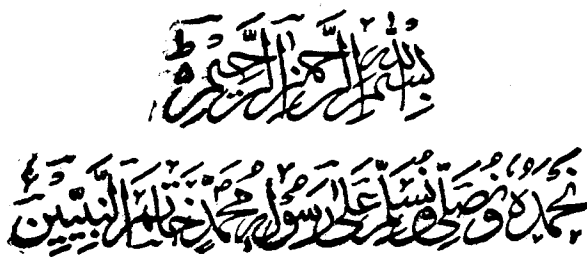 بِسْمِ اللّٰهِ الرَّحْمٰنِ الرَّحِيْمِ ؕ
نَحْمَدُهٗ وَنُصَلِّیْ وَنُسَلِّمُ عَلٰی رَسُوْلِ مُحَمَّدٍ خَاتَمِ النَّبِيِّيْنَ